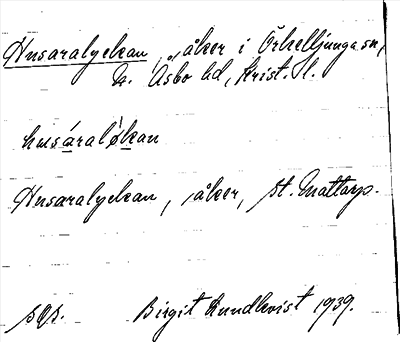 Husaralyckan, åker i Örkelljunga sn,
N. Åsbo hd, Krist. l.
husáralø̀kan
Husaralyckan, åker, St. Mattarp.
Birgit Lundkvist 1939.